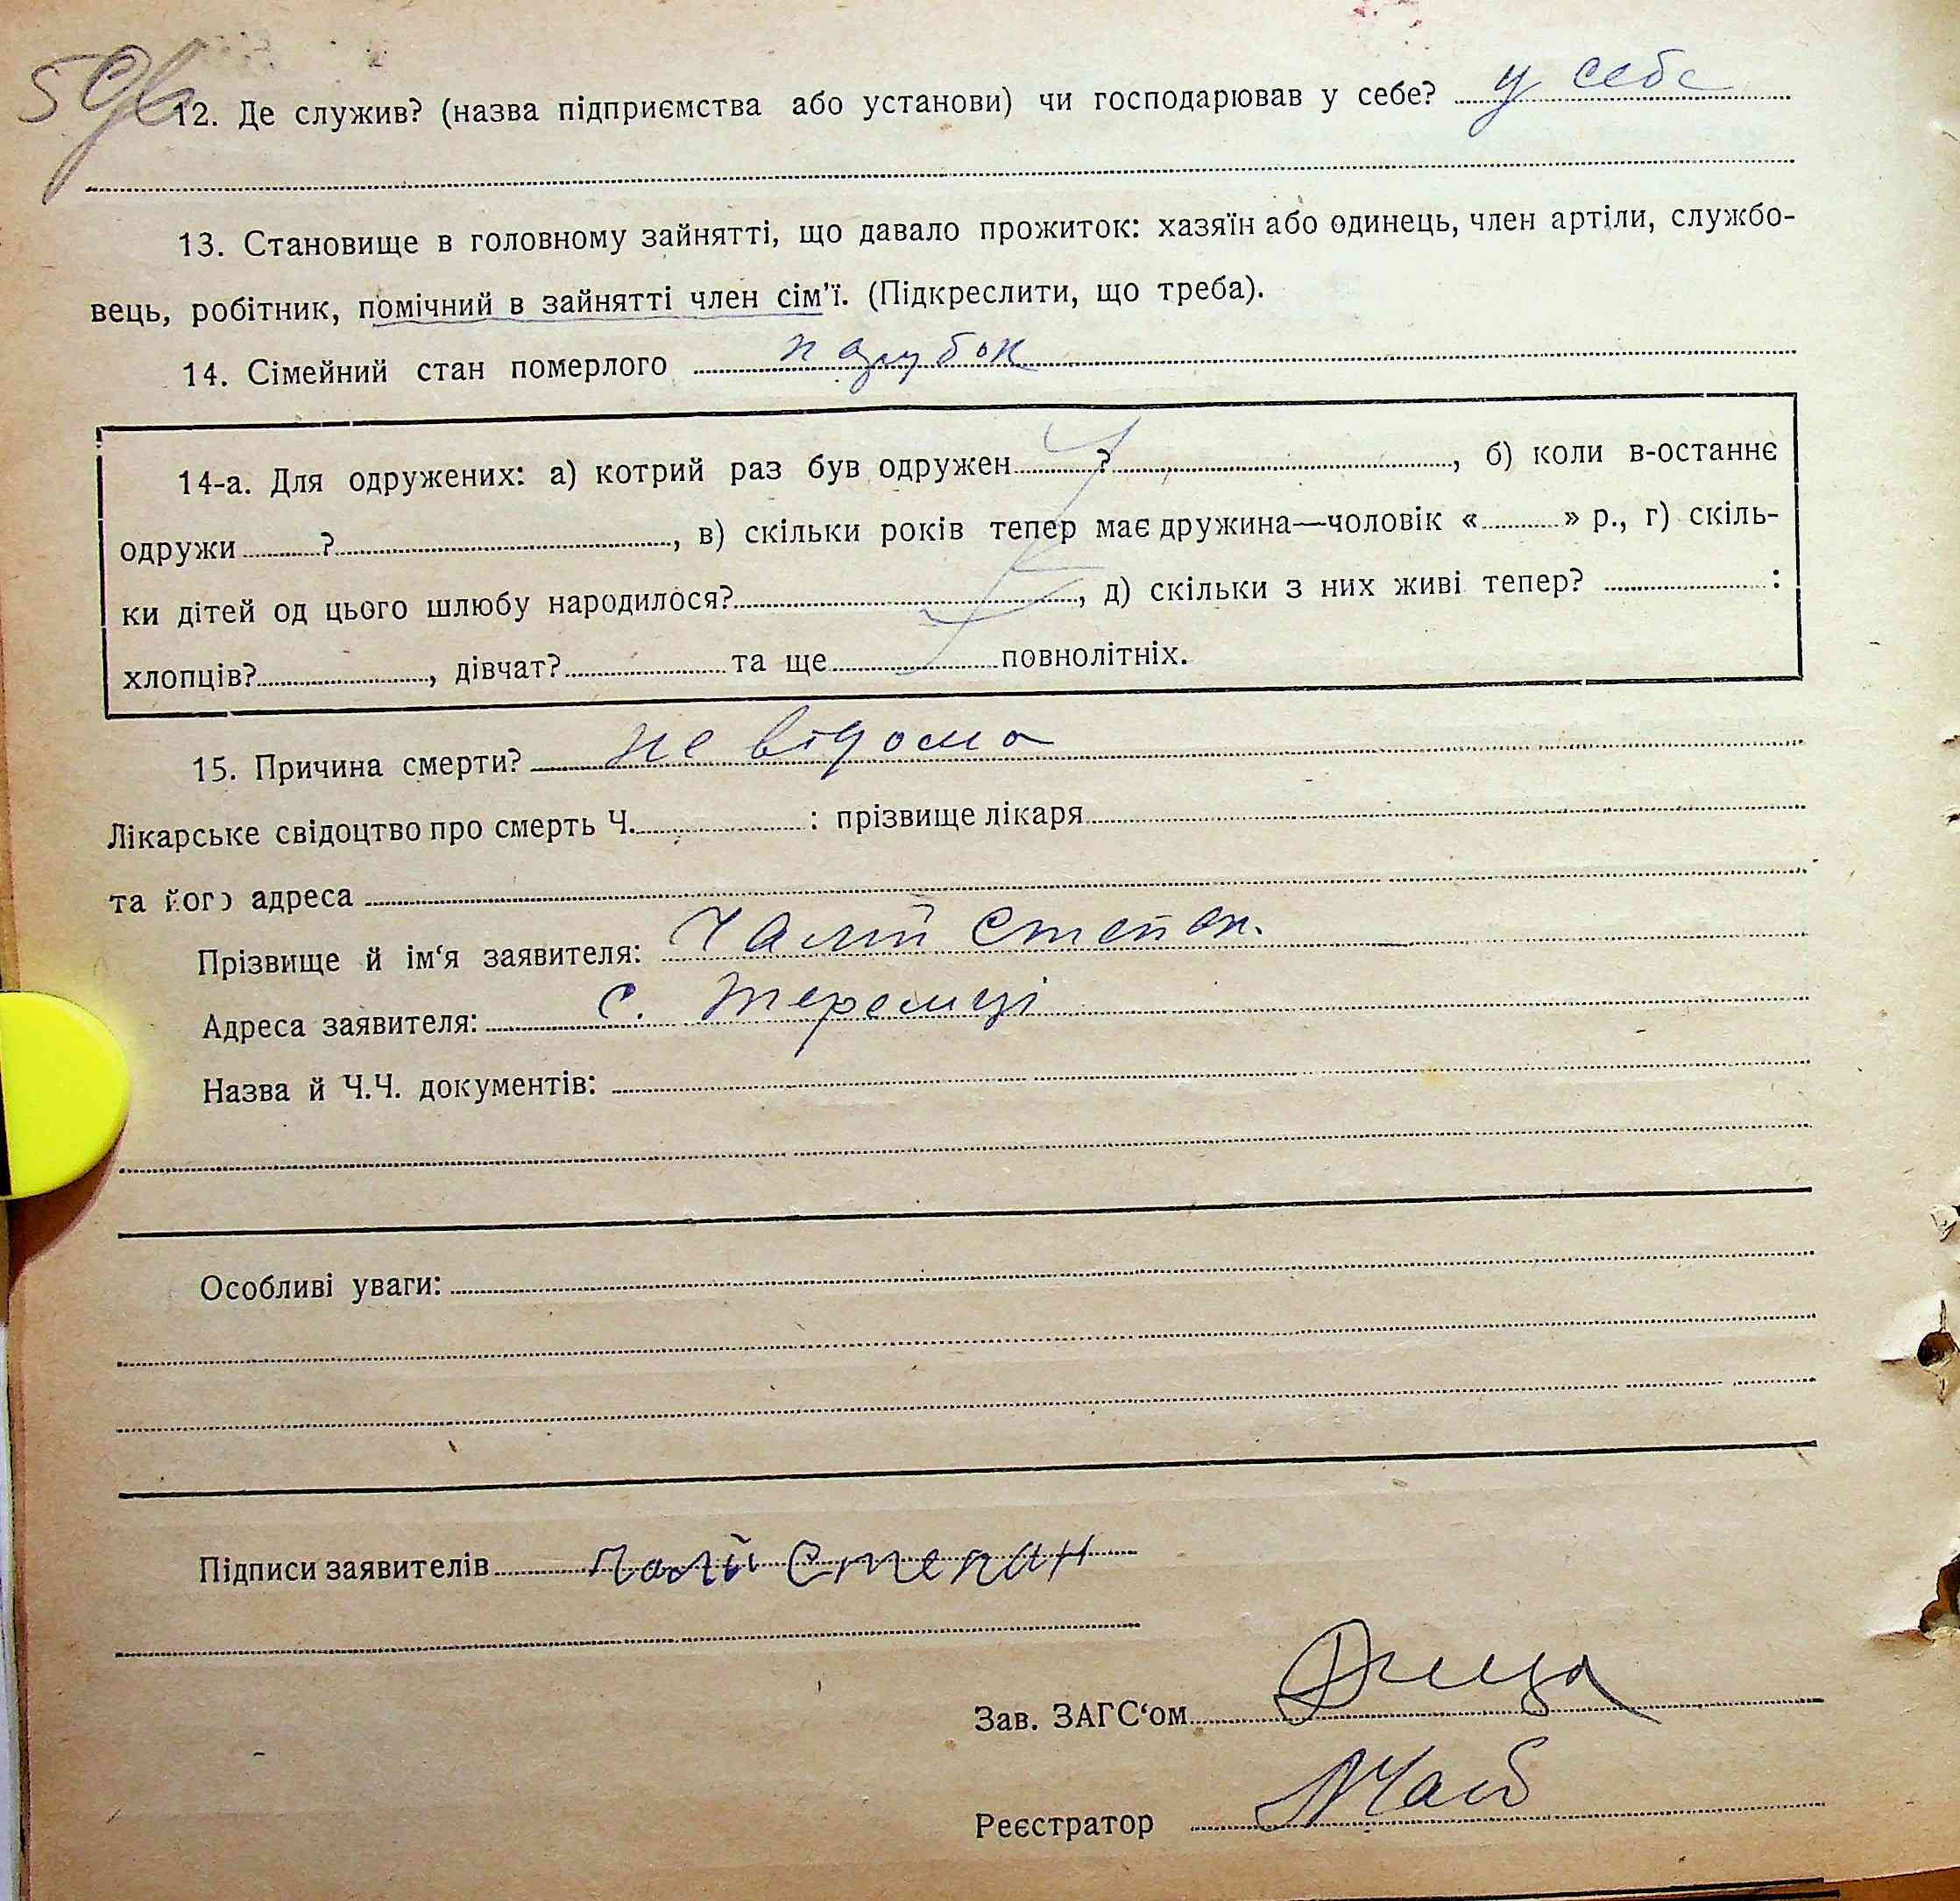 59б
12. Де служив? (назва підприємства або установи) чи господарював у себе? у себе
13. Становище в головному зайнятті, що давало прожиток: хазяїн або одинець, член артіли, службо-
вець, робітник, помічний в зайнятті член сім'ї. (Підкреслити, що треба).
14. Сімейний стан померлого парубок
14-а. Для одружених: а) котрий раз був одружен ?, б) коли в-останнє
одружи ?, в) скільки років тепер має дружина—чоловік « » р., г) скіль-
ки дітей од цього шлюбу народилося?, д) скільки з них живі тепер? :
хлопців?, дівчат? та ще повнолітніх.
15. Причина смерти? не відома
Лікарське свідоцтво про смерть Ч. : прізвище лікаря
та його адреса
Прізвище й ім‘я заявителя: Палій Степан.
Адреса заявителя: с. Теремці
Назва й Ч.Ч. документів:
Особливі уваги:
Підписи заявителів Палій Степан
Зав. ЗАГС‘ом
Реєстратор